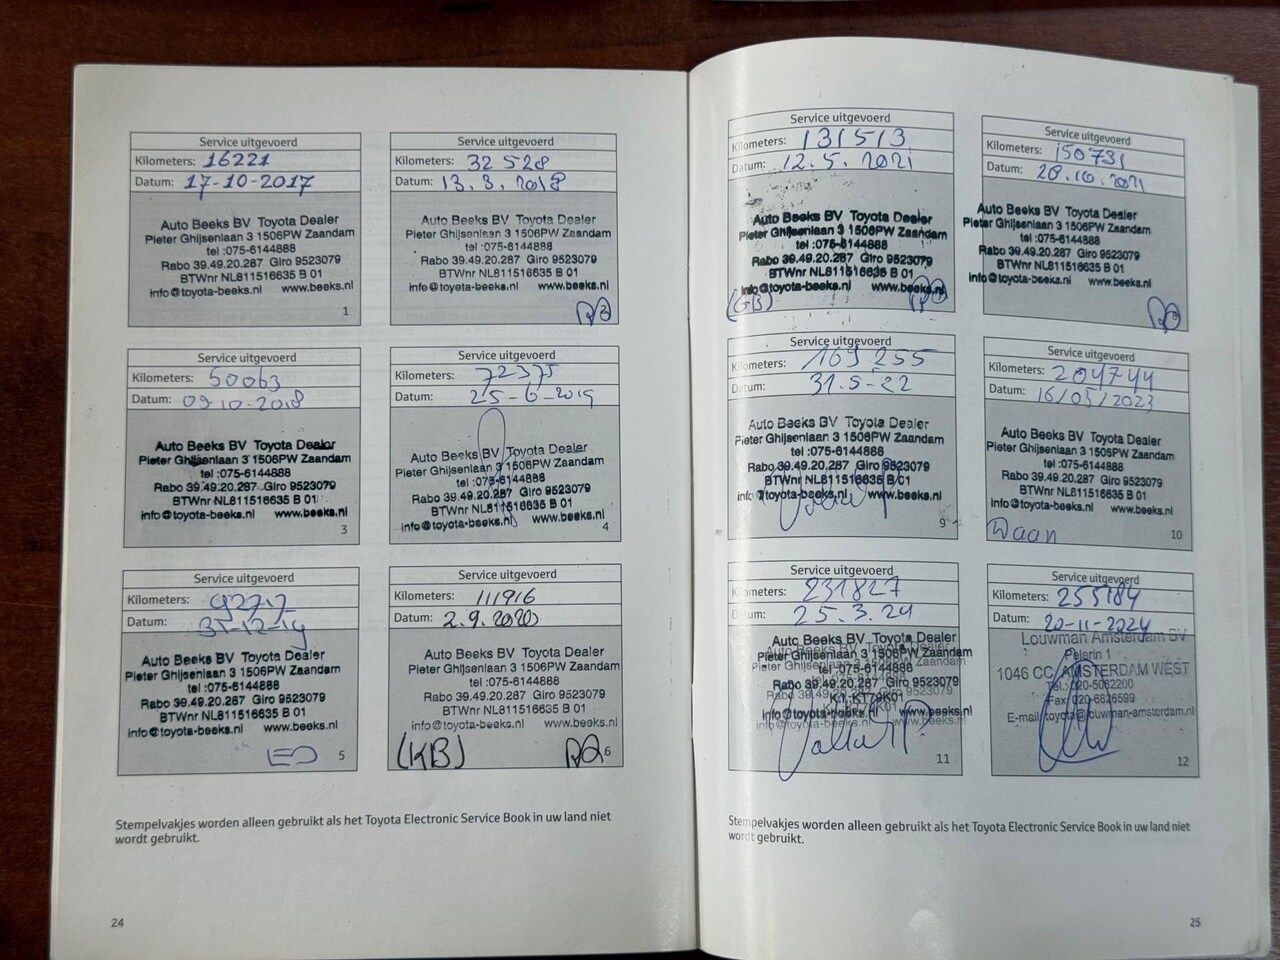 Service uitgevoerd
Kilometers: 16221
Datum: 17-10-2017
Auto Beeks BV Toyota Dealer
Pieter Ghijsenlaan 3 1506PW Zaandam
tel :075-6144888
Rabo 39.49.20.287 Giro 9523079
BTWnr NL811516635 B 01
info@toyota-beeks.nl www.beeks.nl
1
Service uitgevoerd
Kilometers: 32 528
Datum: 13.3.2018
Auto Beeks BV Toyota Dealer
Pieter Ghijsenlaan 3 1506PW Zaandam
tel :075-6144888
Rabo 39.49.20.287 Giro 9523079
BTWnr NL811516635 B 01
info@toyota-beeks.nl www.beeks.nl
Service uitgevoerd
Kilometers: 50063
Datum: 09-10-2018
Auto Beeks BV Toyota Dealer
Pieter Ghijsenlaan 3 1506PW Zaandam
tel :075-6144888
Rabo 39.49.20.287 Giro 9523079
BTWnr NL811516635 B 01
info@toyota-beeks.nl www.beeks.nl
3
Service uitgevoerd
Kilometers: 72375
Datum: 25-6-2019
Auto Beeks BV Toyota Dealer
Pieter Ghijsenlaan 3 1506PW Zaandam
tel :075-6144888
Rabo 39.49.20.287 Giro 9523079
BTWnr NL811516635 B 01
info@toyota-beeks.nl www.beeks.nl
4
Service uitgevoerd
Kilometers: 92717
Datum: 31-12-19
Auto Beeks BV Toyota Dealer
Pieter Ghijsenlaan 3 1506PW Zaandam
tel :075-6144888
Rabo 39.49.20.287 Giro 9523079
BTWnr NL811516635 B 01
info@toyota-beeks.nl www.beeks.nl
5
Service uitgevoerd
Kilometers: 111916
Datum: 2.9.2020
Auto Beeks BV Toyota Dealer
Pieter Ghijsenlaan 3 1506PW Zaandam
tel :075-6144888
Rabo 39.49.20.287 Giro 9523079
BTWnr NL811516635 B 01
info@toyota-beeks.nl www.beeks.nl
(KB)
6
Stempelvakjes worden alleen gebruikt als het Toyota Electronic Service Book in uw land niet
wordt gebruikt.
24
Service uitgevoerd
Kilometers: 131513
Datum: 12.5.2021
Auto Beeks BV Toyota Dealer
Pieter Ghijsenlaan 3 1506PW Zaandam
tel :075-6144888
Rabo 39.49.20.287 Giro 9523079
BTWnr NL811516635 B 01
info@toyota-beeks.nl www.beeks.nl
(GB)
Service uitgevoerd
Kilometers: 150731
Datum: 28.10.2021
Auto Beeks BV Toyota Dealer
Pieter Ghijsenlaan 3 1506PW Zaandam
tel :075-6144888
Rabo 39.49.20.287 Giro 9523079
BTWnr NL811516635 B 01
info@toyota-beeks.nl www.beeks.nl
Service uitgevoerd
Kilometers: 169 255
Datum: 31-5-22
Auto Beeks BV Toyota Dealer
Pieter Ghijsenlaan 3 1506PW Zaandam
tel :075-6144888
Rabo 39.49.20.287 Giro 9523079
BTWnr NL811516635 B 01
info@toyota-beeks.nl www.beeks.nl
9
Service uitgevoerd
Kilometers: 204744
Datum: 16/05/2023
Auto Beeks BV Toyota Dealer
Pieter Ghijsenlaan 3 1506PW Zaandam
tel :075-6144888
Rabo 39.49.20.287 Giro 9523079
BTWnr NL811516635 B 01
info@toyota-beeks.nl www.beeks.nl
Daan
10
Service uitgevoerd
Kilometers: 231827
Datum: 25.3.24
Auto Beeks BV Toyota Dealer
Pieter Ghijsenlaan 3 1506PW Zaandam
tel :075-6144888
Rabo 39.49.20.287 Giro 9523079
info@toyota-beeks.nl www.beeks.nl
11
Service uitgevoerd
Kilometers: 255184
Datum: 20-11-2024
Louwman Amsterdam BV
Pelerin 1
1046 CC AMSTERDAM WEST
Tel.: 020-5062200
Fax: 020-6826599
E-mail: toyota@louwman-amsterdam.nl
12
Stempelvakjes worden alleen gebruikt als het Toyota Electronic Service Book in uw land niet
wordt gebruikt.
25